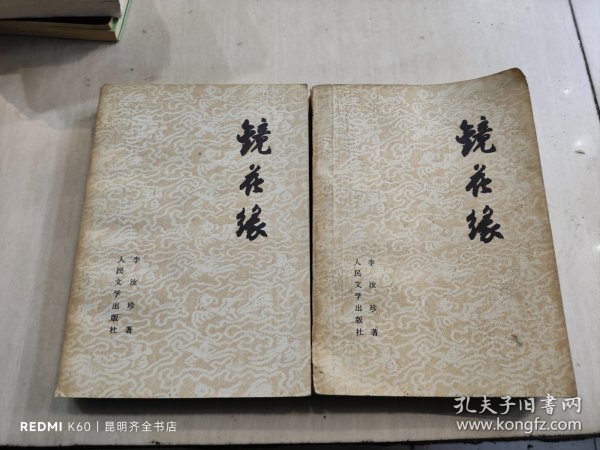 镜花缘
李汝珍著
人民文学出版社
镜花缘
李汝珍著
人民文学出版社
REDMI K60 | 昆明齐全书店
孔夫子旧书网
www.kongfz.com